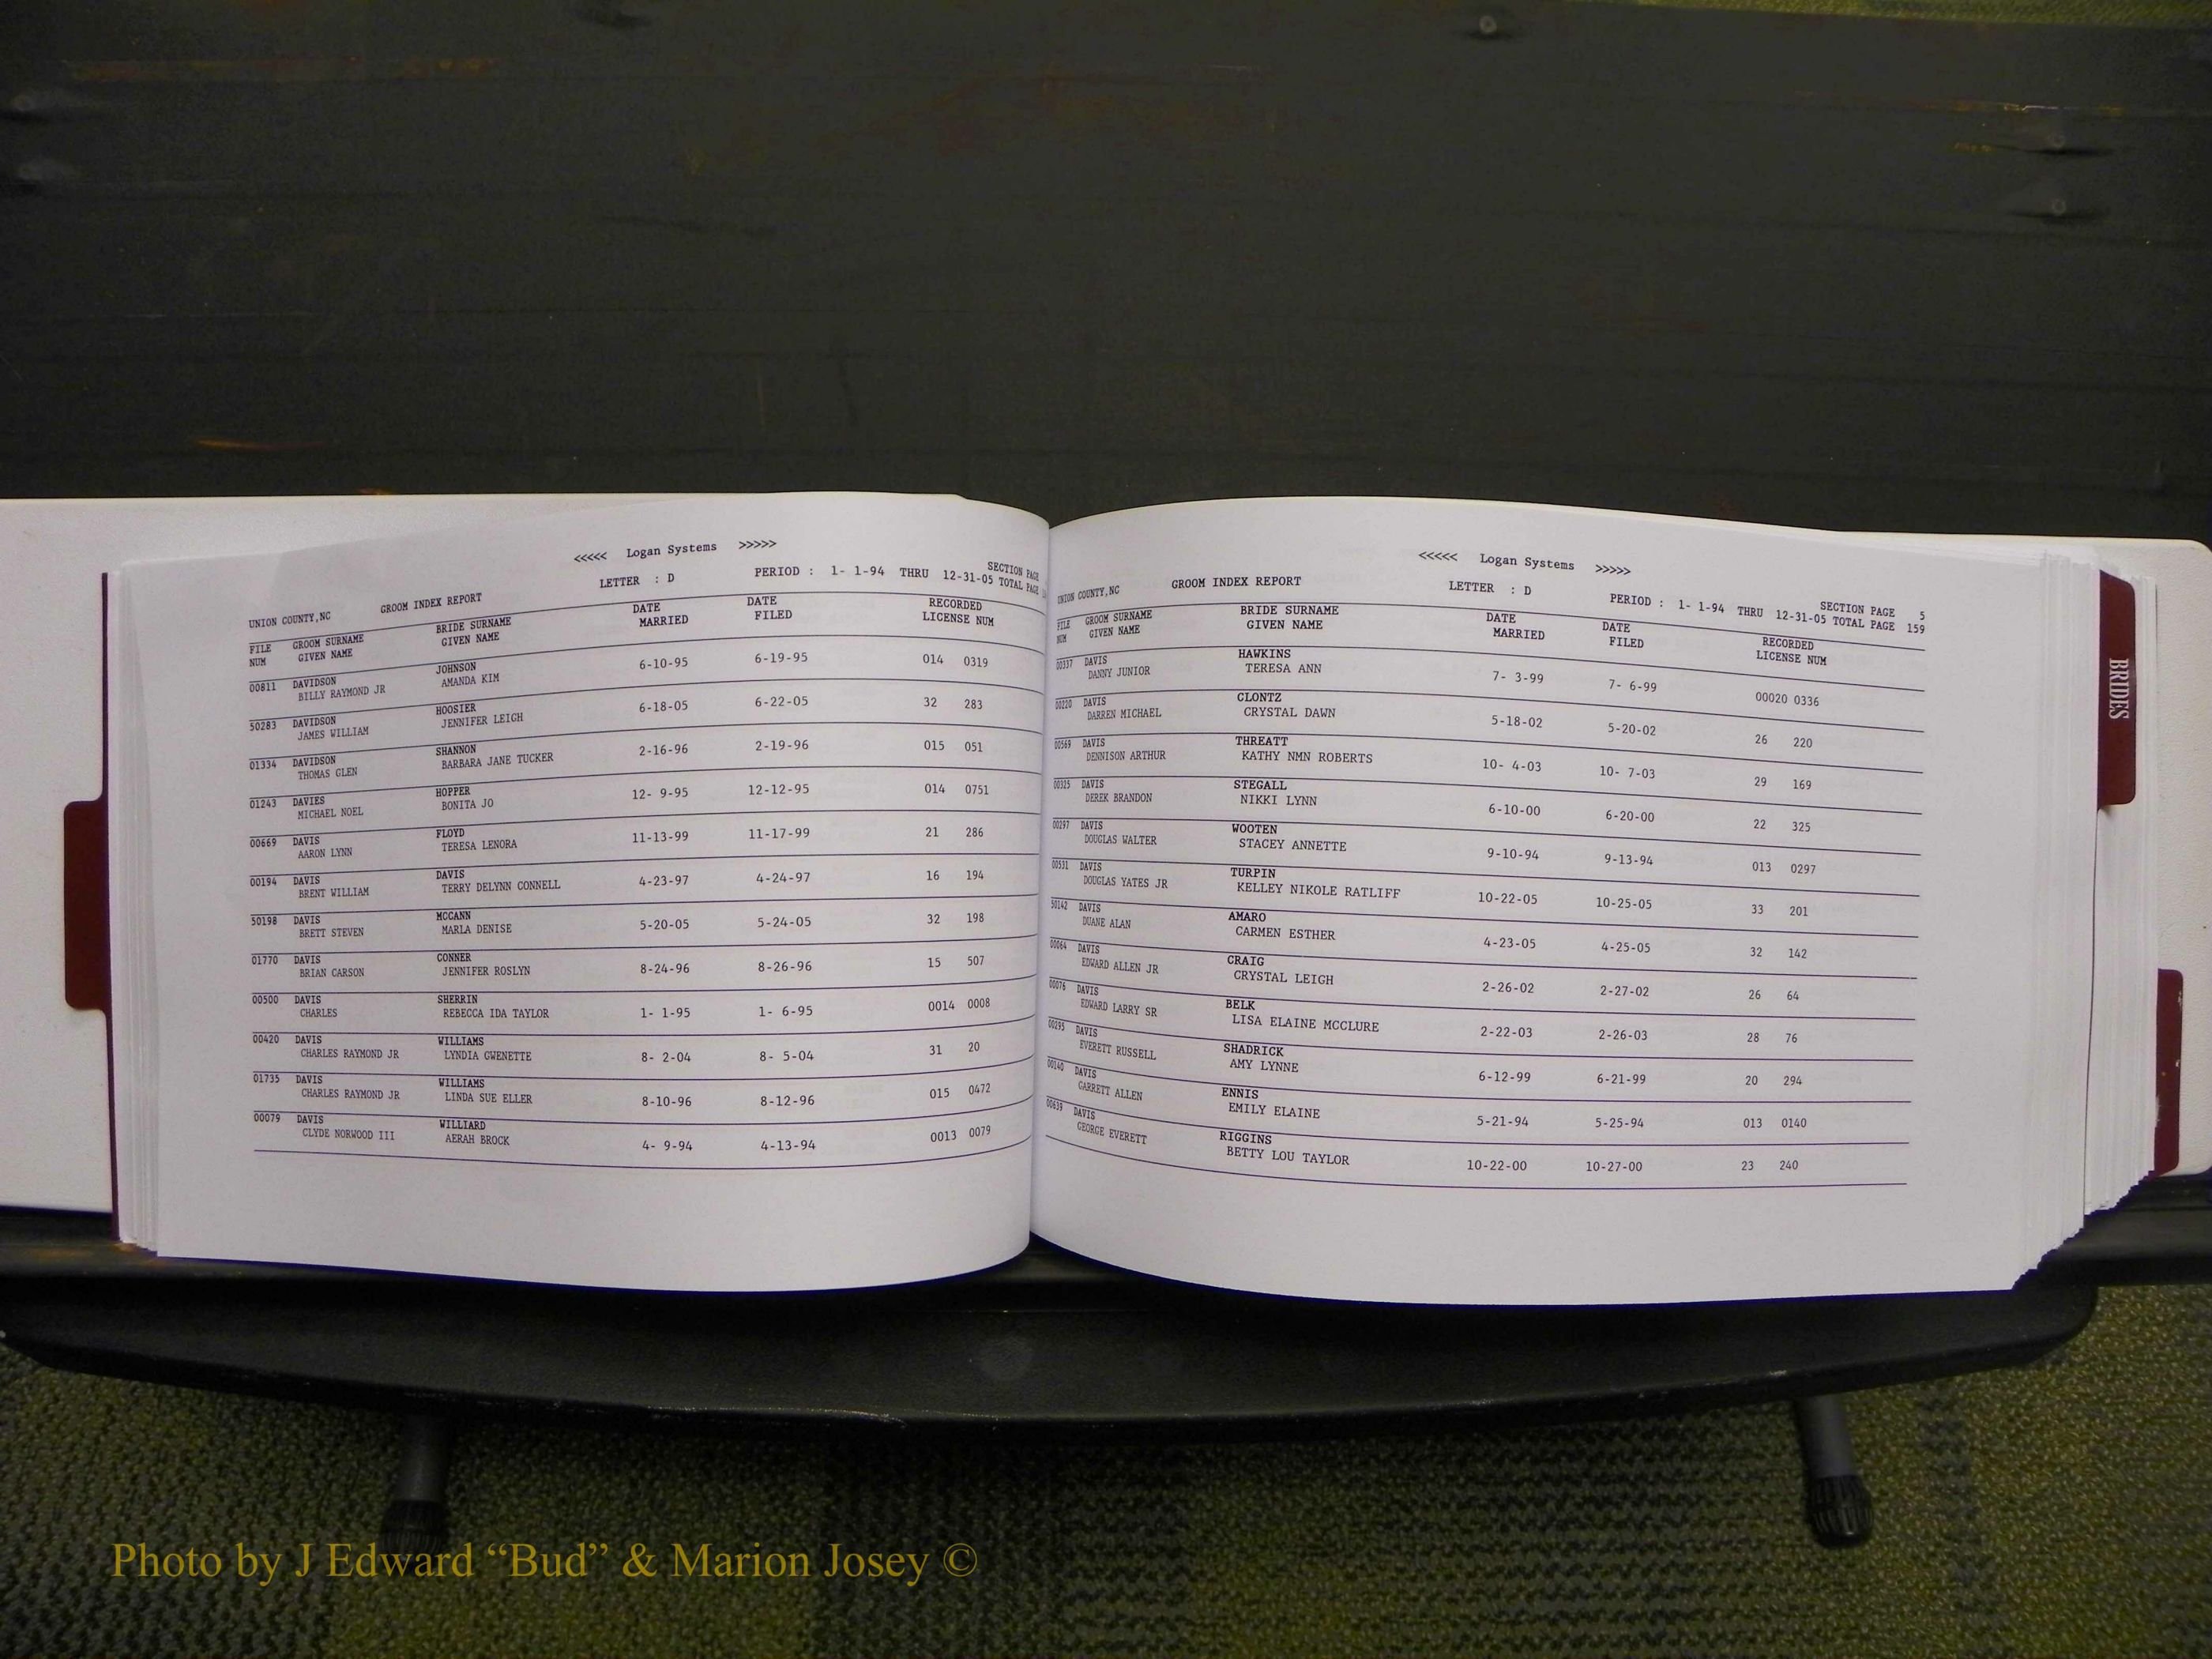 <<<<< Logan Systems >>>>>
UNION COUNTY,NC GROOM INDEX REPORT LETTER : D PERIOD : 1- 1-94 THRU 12-31-05 SECTION PAGE
TOTAL PAGE
FILE GROOM SURNAME BRIDE SURNAME DATE DATE RECORDED
NUM GIVEN NAME GIVEN NAME MARRIED FILED LICENSE NUM
00811 DAVIDSON JOHNSON 6-10-95 6-19-95 014 0319
BILLY RAYMOND JR AMANDA KIM
50283 DAVIDSON HOOSIER 6-18-05 6-22-05 32 283
JAMES WILLIAM JENNIFER LEIGH
01334 DAVIDSON SHANNON 2-16-96 2-19-96 015 051
THOMAS GLEN BARBARA JANE TUCKER
01243 DAVIES HOPPER 12- 9-95 12-12-95 014 0751
MICHAEL NOEL BONITA JO
00669 DAVIS FLOYD 11-13-99 11-17-99 21 286
AARON LYNN TERESA LENORA
00194 DAVIS DAVIS 4-23-97 4-24-97 16 194
BRENT WILLIAM TERRY DELYNN CONNELL
50198 DAVIS MCCANN 5-20-05 5-24-05 32 198
BRETT STEVEN MARLA DENISE
01770 DAVIS CONNER 8-24-96 8-26-96 15 507
BRIAN CARSON JENNIFER ROSLYN
00500 DAVIS SHERRIN 1- 1-95 1- 6-95 0014 0008
CHARLES REBECCA IDA TAYLOR
00420 DAVIS WILLIAMS 8- 2-04 8- 5-04 31 20
CHARLES RAYMOND JR LYNDIA GWENETTE
01735 DAVIS WILLIAMS 8-10-96 8-12-96 015 0472
CHARLES RAYMOND JR LINDA SUE ELLER
00079 DAVIS WILLIARD 4- 9-94 4-13-94 0013 0079
CLYDE NORWOOD III AERAH BROCK
<<<<< Logan Systems >>>>>
UNION COUNTY,NC GROOM INDEX REPORT LETTER : D PERIOD : 1- 1-94 THRU 12-31-05 SECTION PAGE 5
TOTAL PAGE 159
FILE GROOM SURNAME BRIDE SURNAME DATE DATE RECORDED
NUM GIVEN NAME GIVEN NAME MARRIED FILED LICENSE NUM
00337 DAVIS HAWKINS 7- 3-99 7- 6-99 00020 0336
DANNY JUNIOR TERESA ANN
00220 DAVIS CLONTZ 5-18-02 5-20-02 26 220
DARREN MICHAEL CRYSTAL DAWN
00569 DAVIS THREATT 10- 4-03 10- 7-03 29 169
DENNISON ARTHUR KATHY NMN ROBERTS
00325 DAVIS STEGALL 6-10-00 6-20-00 22 325
DEREK BRANDON NIKKI LYNN
00297 DAVIS WOOTEN 9-10-94 9-13-94 013 0297
DOUGLAS WALTER STACEY ANNETTE
00531 DAVIS TURPIN 10-22-05 10-25-05 33 201
DOUGLAS YATES JR KELLEY NIKOLE RATLIFF
50142 DAVIS AMARO 4-23-05 4-25-05 32 142
DUANE ALAN CARMEN ESTHER
00064 DAVIS CRAIG 2-26-02 2-27-02 26 64
EDWARD ALLEN JR CRYSTAL LEIGH
00076 DAVIS BELK 2-22-03 2-26-03 28 76
EDWARD LARRY SR LISA ELAINE MCCLURE
00295 DAVIS SHADRICK 6-12-99 6-21-99 20 294
EVERETT RUSSELL AMY LYNNE
00140 DAVIS ENNIS 5-21-94 5-25-94 013 0140
GARRETT ALLEN EMILY ELAINE
00639 DAVIS RIGGINS 10-22-00 10-27-00 23 240
GEORGE EVERETT BETTY LOU TAYLOR
BRIDES
Photo by J Edward “Bud” & Marion Josey ©